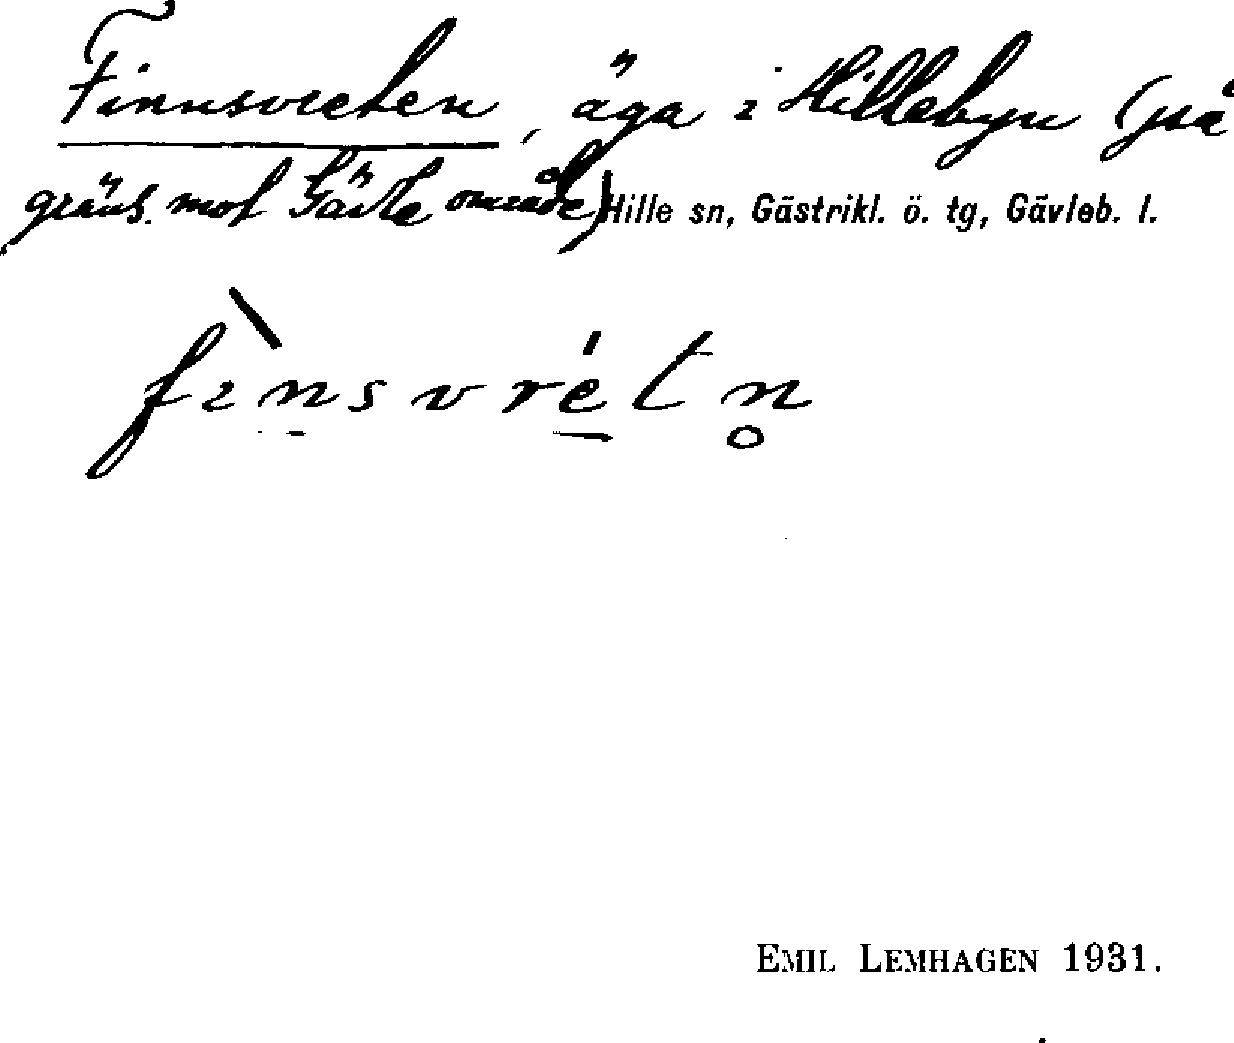 Finnsvreten, äga i Hillebyn (på
gräns. mot Gävle område) Hille sn, Gästrikl. ö. tg, Gävleb. l.
fìnsvrétn̥
EMIL LEMHAGEN 1931.